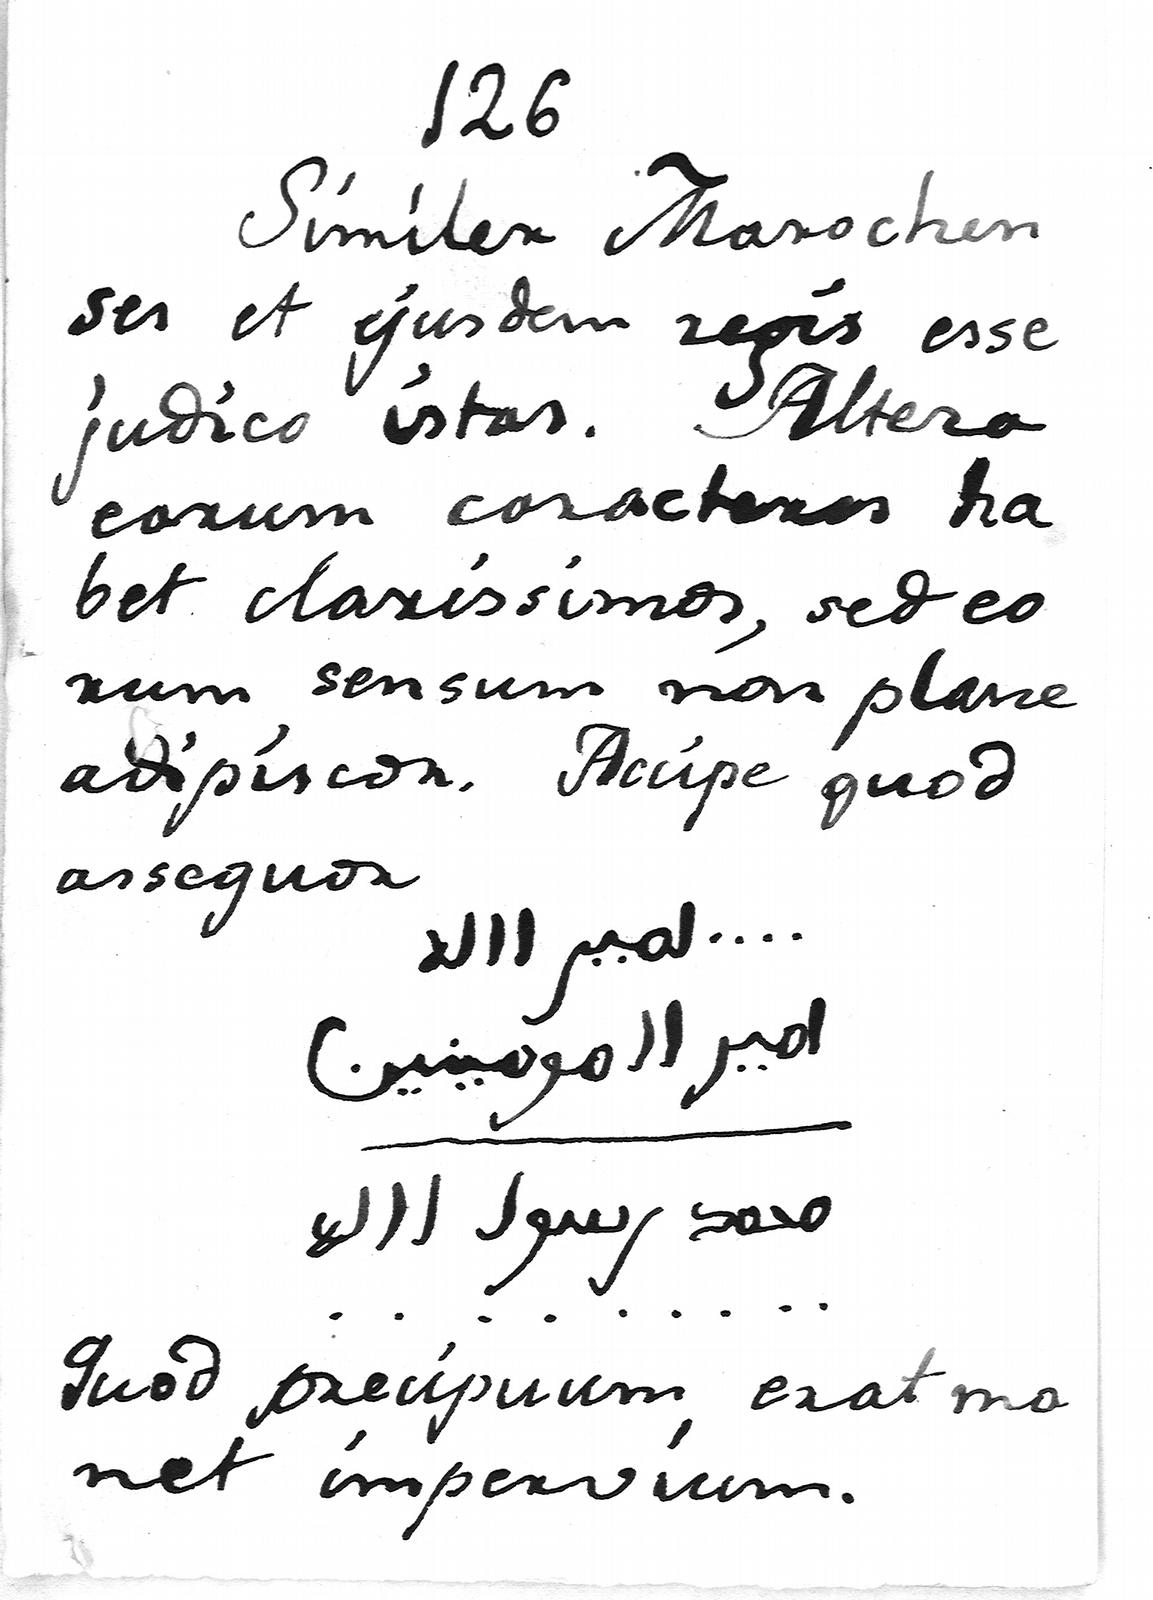 126
Similes Marochen
ses et ejusdem regis esse
judico istas. Altera
earum caracteres ha
bet clarissimos, sed eo
rum sensum non plane
adipiscor. Accipe quod
assequor
....امير االله
امير االمومينين
محمد رسول االله
. . . . . . . . . .
Quod precipuum erat ma
net impervium.